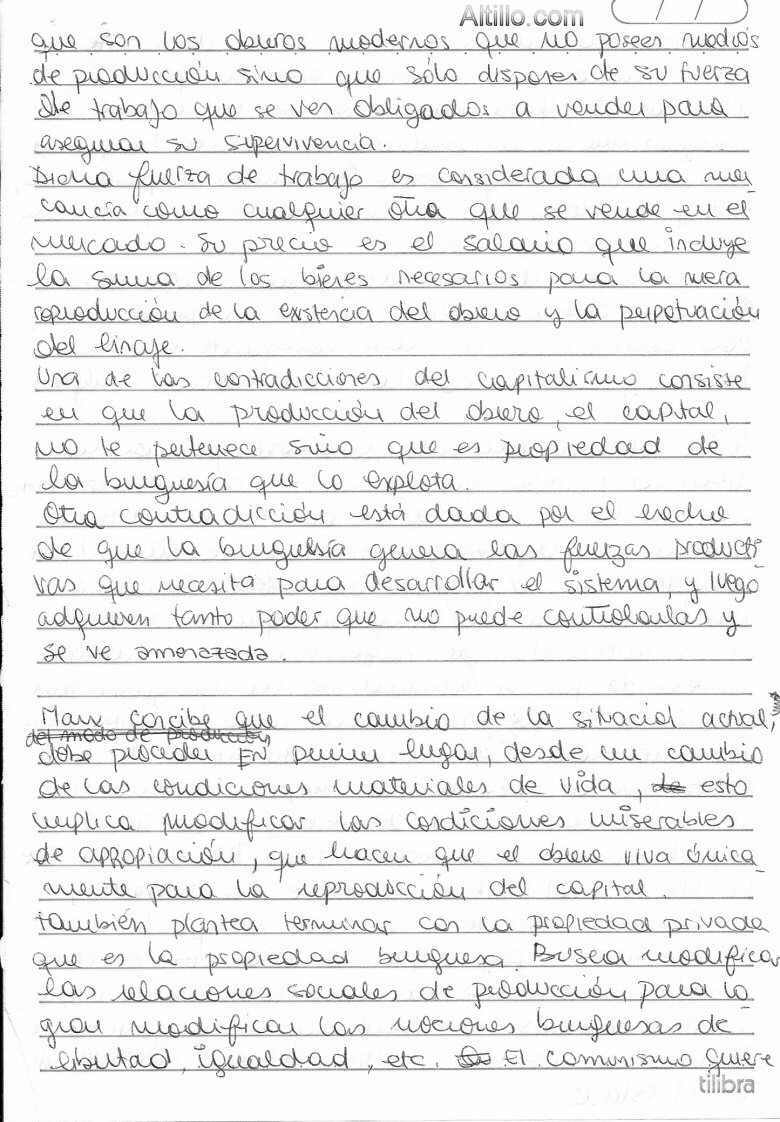 Altillo.com
que son los obreros modernos que no poseen medios
de producción sino que sólo disponen de su fuerza
de trabajo que se ven obligados a vender para
asegurar su supervivencia.
Dicha fuerza de trabajo es considerada una mer
cancía como cualquier otra que se vende en el
mercado. Su precio es el salario que incluye
la suma de los bienes necesarios para la mera
reproducción de la existencia del obrero y la perpetuación
del linaje.
Una de las contradicciones del capitalismo consiste
en que la producción del obrero, el capital,
no le pertenece sino que es propiedad de
la burguesía que lo explota.
Otra contradicción está dada por el hecho
de que la burguesía genera las fuerzas producti
vas que necesita para desarrollar el sistema, y luego
adquieren tanto poder que no puede controlarlas y
se ve amenazada.
Marx concibe que el cambio de la situación actual,
del modo de producción,
debe proceder EN primer lugar, desde un cambio
de las condiciones materiales de vida, de esto
implica modificar las condiciones miserables
de apropiación, que hacen que el obrero viva única
mente para la reproducción del capital.
también plantea terminar con la propiedad privada
que es la propiedad burguesa. Busca modificar
las relaciones sociales de producción para lo
grar modificar las nociones burguesas de
libertad, igualdad, etc. El comunismo quiere
tilibra